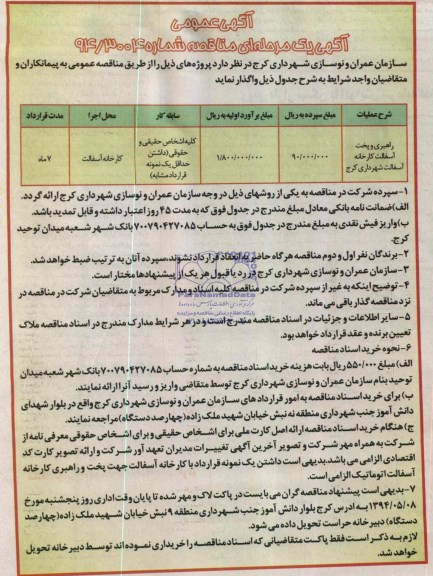 آگهی عمومی
آگهی یک مرحله‌ای مناقصه شماره ۹۴/۳۰۰۴
سازمان عمران و نوسازی شهرداری کرج در نظر دارد پروژه‌های ذیل را از طریق مناقصه عمومی به پیمانکاران و
متقاضیان واجد شرایط به شرح جدول ذیل واگذار نماید
شرح عملیات مبلغ سپرده به ریال مبلغ برآورد اولیه به ریال سابقه کار محل اجرا مدت قرارداد
راهبری و پخت آسفالت کارخانه آسفالت شهرداری کرج ۹۰/۰۰۰/۰۰۰ ۱/۸۰۰/۰۰۰/۰۰۰ کلیه اشخاص حقیقی و حقوقی (داشتن حداقل یک نمونه قرارداد مشابه) کارخانه آسفالت ۷ ماه
۱-سپرده شرکت در مناقصه به یکی از روشهای ذیل در وجه سازمان عمران و نوسازی شهرداری کرج ارائه گردد.
الف)ضمانت نامه بانکی معادل مبلغ مندرج در جدول فوق که به مدت ۴۵ روز اعتبار داشته و قابل تمدید باشد.
ب)واریز فیش نقدی به مبلغ مندرج در جدول فوق به حساب ۷۰۰۷۹۰۴۲۷۰۸۵ بانک شهر شعبه میدان توحید
کرج.
۲-برندگان نفر اول و دوم مناقصه هرگاه حاضر به انعقاد قرارداد نشوند، سپرده آنان به ترتیب ضبط خواهد شد.
۳-سازمان عمران و نوسازی شهرداری کرج در رد یا قبول هر یک از پیشنهادها مختار است.
۴-توضیح اینکه به غیر از سپرده شرکت در مناقصه کلیه اسناد و مدارک مربوط به متقاضیان شرکت در مناقصه در
نزد مناقصه گذار باقی می‌ماند.
ParsNamadData
۵-سایر اطلاعات و جزئیات در اسناد مناقصه مندرج است و در هر شرایط مدارک مندرج در اسناد مناقصه ملاک
تعیین برنده و عقد قرارداد خواهد بود.
۶-نحوه خرید اسناد مناقصه
الف) مبلغ ۵۵۰/۰۰۰ ریال بابت هزینه خرید اسناد مناقصه به شماره حساب ۷۰۰۷۹۰۴۲۷۰۸۵ بانک شهر شعبه میدان
توحید بنام سازمان عمران و نوسازی شهرداری کرج توسط متقاضی واریز و رسید آنرا ارائه نمایند.
ب) برای خرید اسناد مناقصه به امور قرارداد های سازمان عمران و نوسازی شهرداری کرج واقع در بلوار شهدای
دانش آموز جنب شهرداری منطقه نه نبش خیابان شهید ملک زاده (چهارصد دستگاه) مراجعه نمایند.
ج) هنگام خرید اسناد مناقصه ارائه اصل کارت ملی برای اشخاص حقیقی و برای اشخاص حقوقی معرفی نامه از
شرکت به همراه مهر شرکت و تصویر آخرین آگهی تغییرات مدیران تعهد آور شرکت و ارائه تصویر کارت کد
اقتصادی الزامی می باشد.بدیهی است داشتن یک نمونه قرارداد با کارخانه آسفالت جهت پخت و راهبری کارخانه
آسفالت اتوماتیک الزامی است.
۷-بدیهی است پیشنهاد مناقصه گران می بایست در پاکت لاک و مهر شده تا پایان وقت اداری روز پنجشنبه مورخ
۱۳۹۴/۰۵/۰۸ به ادرس کرج بلوار دانش آموز جنب شهرداری منطقه ۹ نبش خیابان شهید ملک زاده (چهارصد
دستگاه) دبیرخانه حراست تحویل داده می شود.
لازم به ذکر است فقط پاکت متقاضیانی که اسناد مناقصه را خریداری نموده اند توسط دبیرخانه تحویل
خواهد شد.